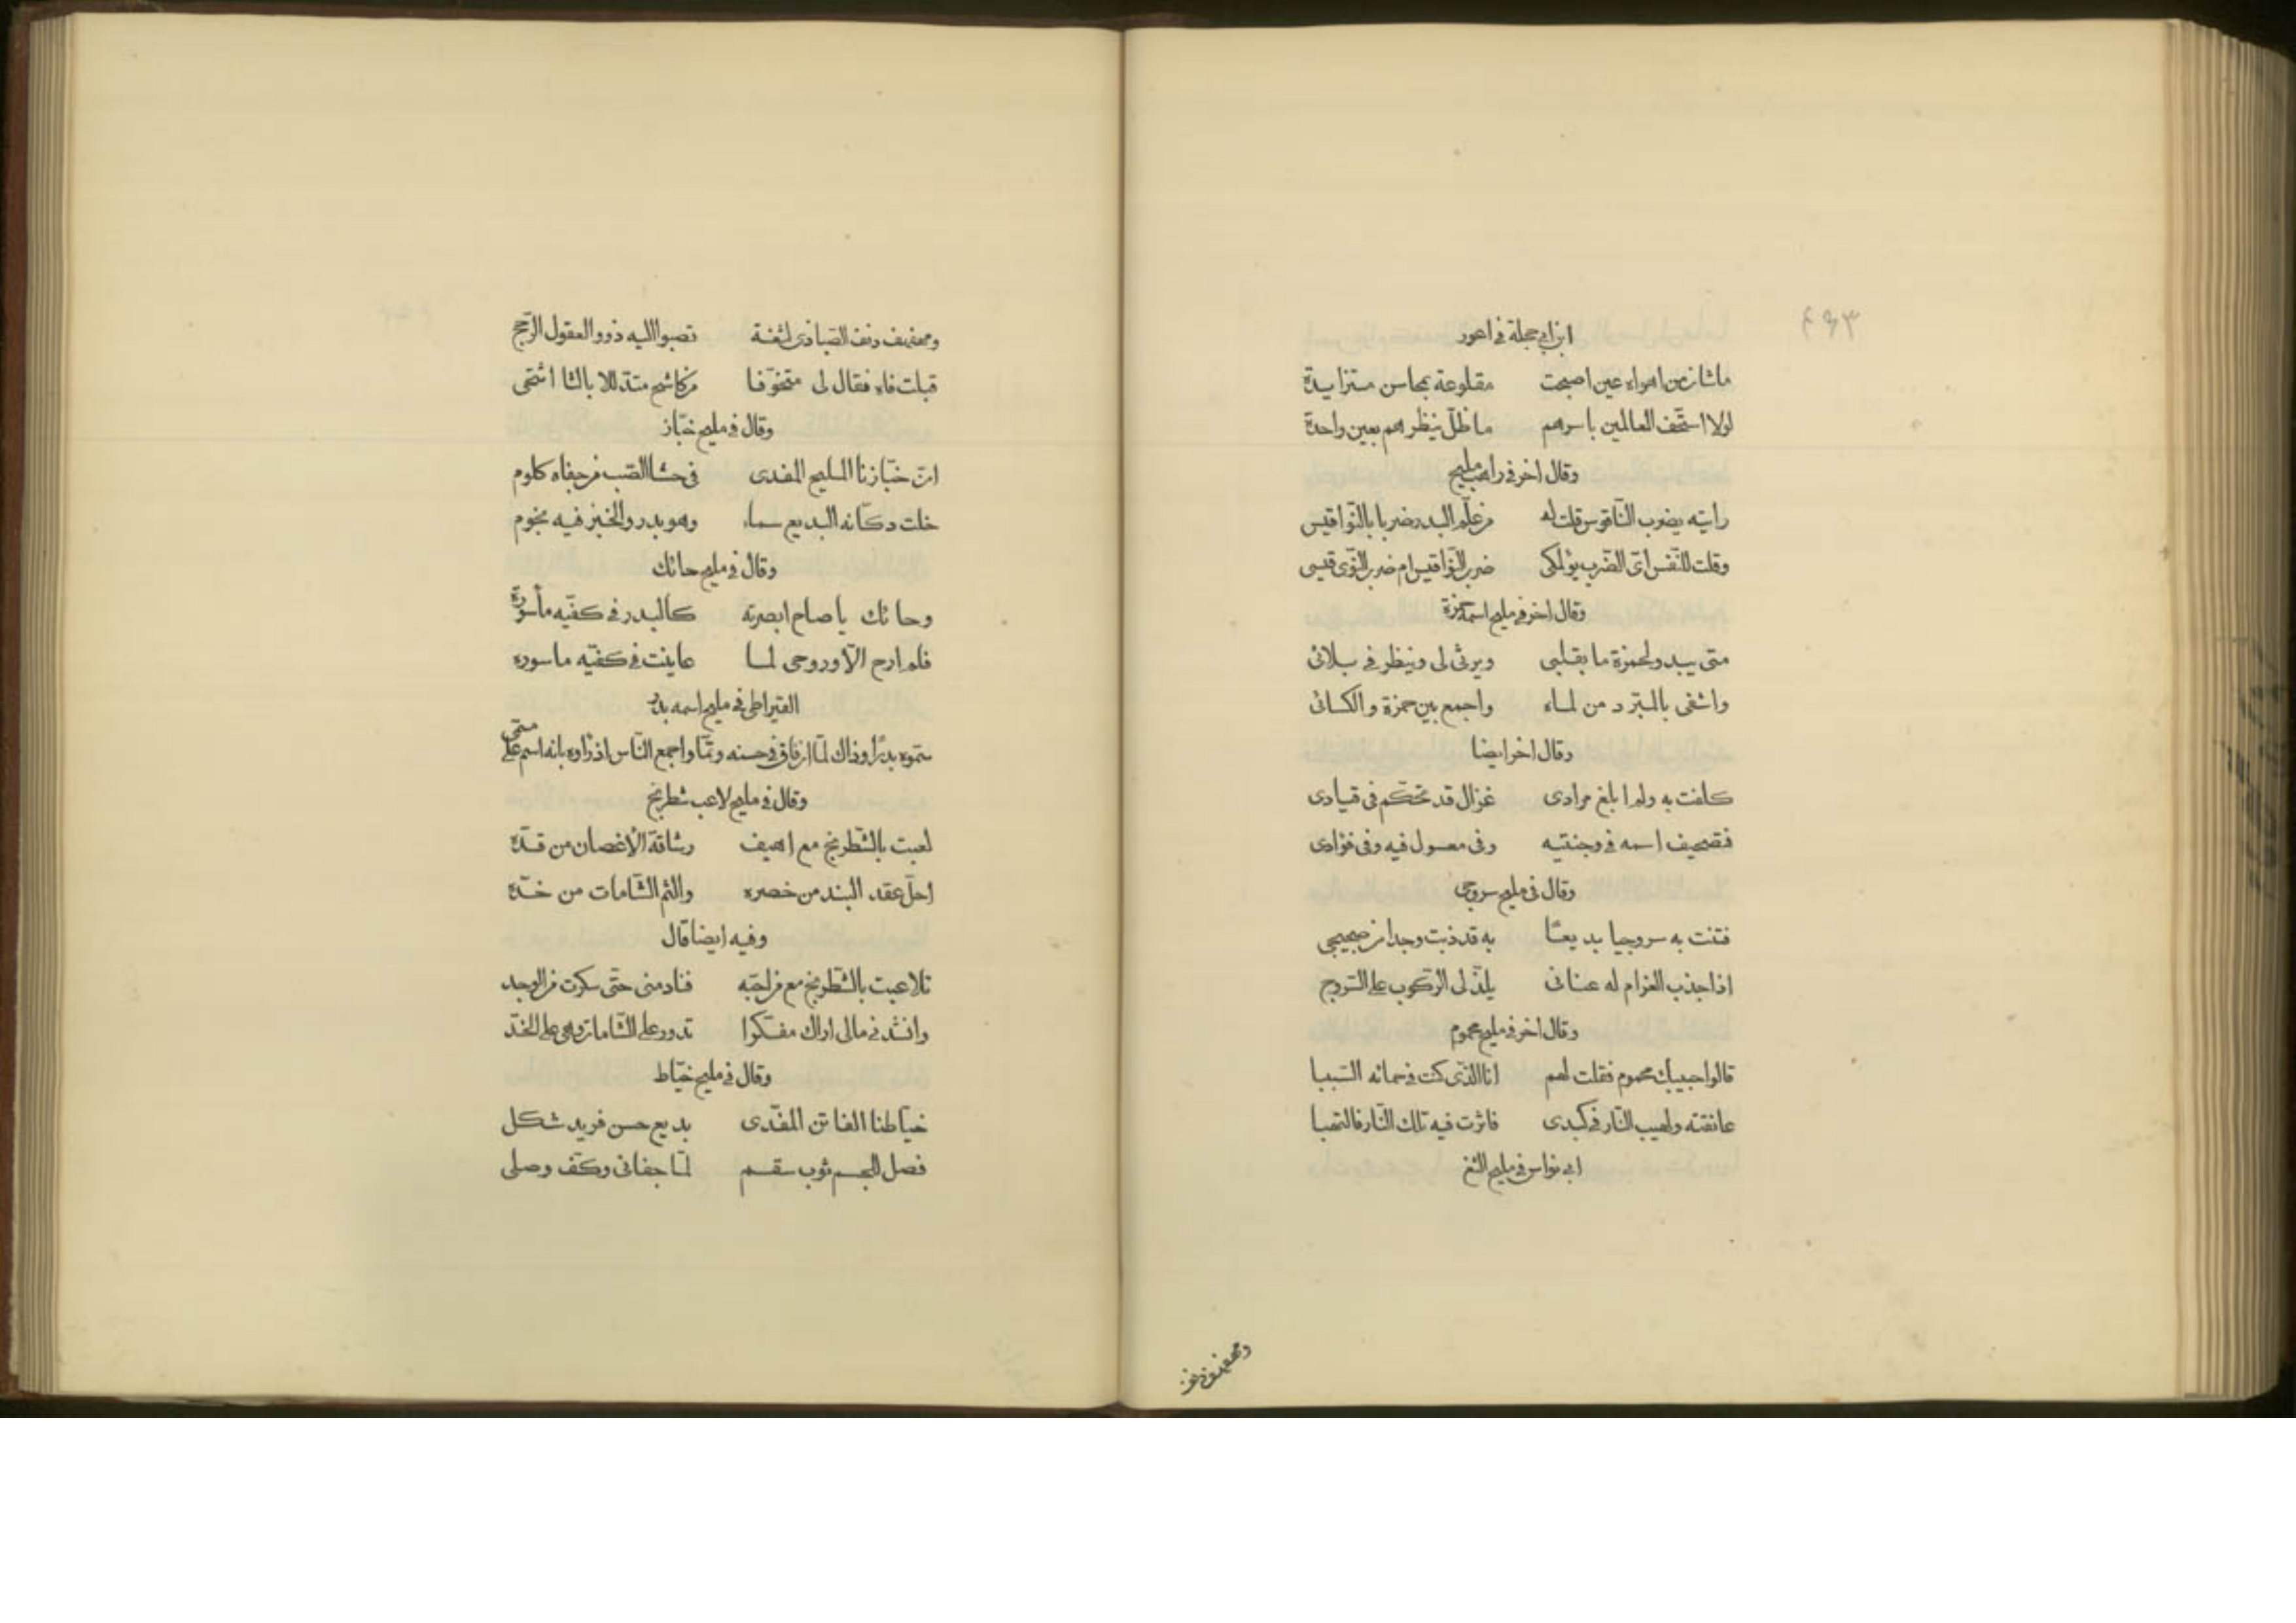 ٤٩٣
ابن ابي حجلة في اعور
ما شان من اهواه عين اصبحت مقلوعة بمحاسن متزايدة
لولا استخف العالمين باسرهم ما ظل ينظرهم بعين واحدة
وقال اخر في راهب مليح
رايته يضرب الناقوس قلت له من علّم البدر ضربا بالنّواقيس
وقلت للنّفس اىّ الضّرب يؤلمكى ضرب النّواقيس ام ضرب النّوى قيسى
وقال اخر في مليح اسمه حمزة
متى يبدو لحمزة ما بقلبى ويرثى لى وينظر فى بلائى
واشفى بالمبرّد من لماه واجمع بين حمزة والكسائى
وقال اخر ايضا
كلفت به ولم ابلغ مرادى غزال قد تحكّم فى قيادى
فتصحيف اسمه فى وجنتيه وفى معسول فيه وفى فؤادى
وقال فى مليح سروجى
فتنت به سروجيا بديعا به قد ذبت وجدا من ضجيجى
اذا جذب الغرام له عنانى يلذّ لى الرّكوب على السّروج
وقال اخر فى مليح محموم
قالوا حبيبك محموم فقلت لهم انا الّذى كنت فى حمائه السّببا
عانقته ولهيب النّار فى كبدى فاثرت فيه تلك النّار فالتهبا
ابى نواس فى مليح الثغ
ومهفهف دنف
ومهفهف دنف الصّبا ذى لثغة تصبوا اليه ذوو العقول الرّجح
قبلت فاه فقال لى متخوّفا من كاشح متدللا بالثا اثتحى
وقال فى مليح خبّاز
انّ خبّازنا المليح المفدى فى حشا الصّب من جفاه كلوم
خلت دكّانه البديع سماء وهو بدر والخبز فيه نجوم
وقال فى مليح حائك
وحائك يا صاح ابصرته كالبدر فى كفّيه مأسورة
فلم ارح الّا وروحى لما عاينت فى كفّيه ماسوره
القيراطى فى مليح اسمه بدر
سمّوه بدرًا وذاك لمّا ان فاق فى حسنه وتمّا واجمع النّاس اذ راوه بانه اسم على مسمّى
وقال فى مليح لاعب شطرنج
لعبت بالشّطرنج مع اهيف رشاقة الأغصان من قدّه
احلّ عقد البند من خصره والثم الشّامات من خدّه
وفيه ايضا قال
تلاعبت بالشّطرنج مع من احبّه فنادمنى حتّى سكرت من الوجد
وانشدنى مالى اراك مفكرا تدور على الشّامات وهى على الخدّ
وقال فى مليح خيّاط
خيّاطنا الفاتن المفّدى بديع حسن فريد شكل
فصل للجسم ثوب سقم لمّا جفانى وكفّ وصلى